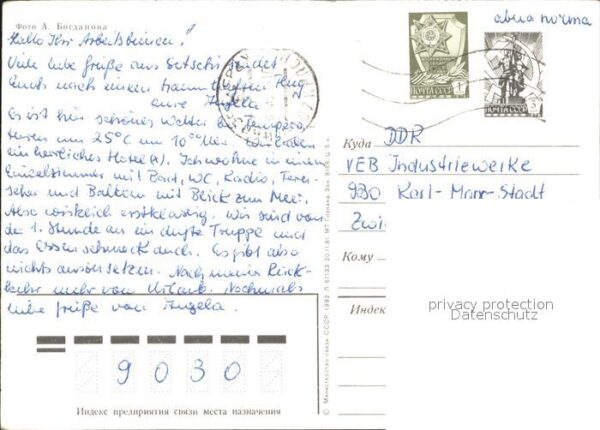 Фото А. Богданова
Hallo Ihr Arbeitsbienen!
Viele liebe Grüße aus Sotschi sendet
Euch nach einem traumhaften Flug
eure Angela
Es ist hier schönes Wetter bei Tempera-
turen um 25°C um 10⁰⁰ Uhr. Wir haben
ein herrliches Hotel (A). Ich wohne in einem
Einzelzimmer mit Bad, WC, Radio, Fern-
seher und Balkon mit Blick zum Meer.
Also wirklich erstklassig. Wir sind von
der 1. Stunde an ein dufte Truppe und
das Essen schmeckt auch. Es gibt also
nichts auszusetzen. Nach meiner Rück-
kehr mehr vom Urlaub. Nochmals
liebe Grüße von Angela.
9030
Индекс предприятия связи места назначения
© Министерство связи СССР, 1982
авиа почта
ПОЧТА СССР
1
ПОЧТА СССР
3
Куда DDR
VEB Industriewerke
9030 Karl-Marx-Stadt
Zwi
Кому
Индек
privacy protection
Datenschutz